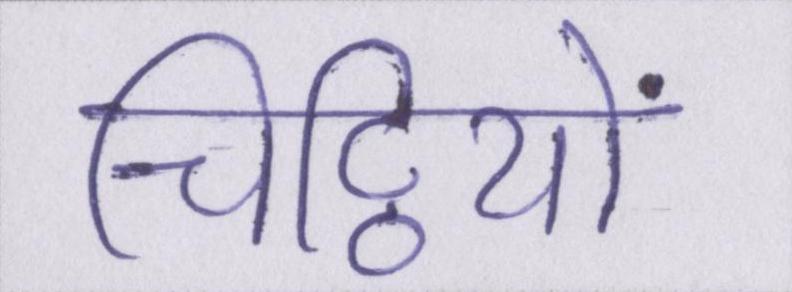 चिट्ठियों